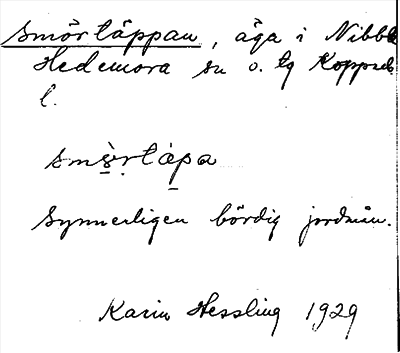 Smörtäppan, äga i Nibble
Hedemora sn o. tg Koppbs
l.
smö̀rtápa
Synnerligen bördig jordmån.
Karin Hessling 1929